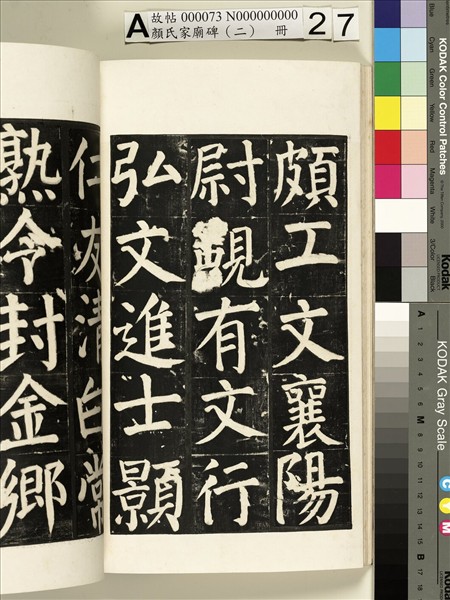 故帖 000073 N000000000
顏氏家廟碑（二） 冊
A
27
頗工文襄陽
尉 有文行
弘文進士顥
仁友清白常
熟令封金鄉
KODAK Color Control Patches
Blue
Cyan
Green
Yellow
Red
Magenta
White
3/Color
Black
Kodak
KODAK Gray Scale
A 1 2 3 4 5 6 M 8 9 10 11 12 13 14 15 B 17 18
C Y M
Kodak